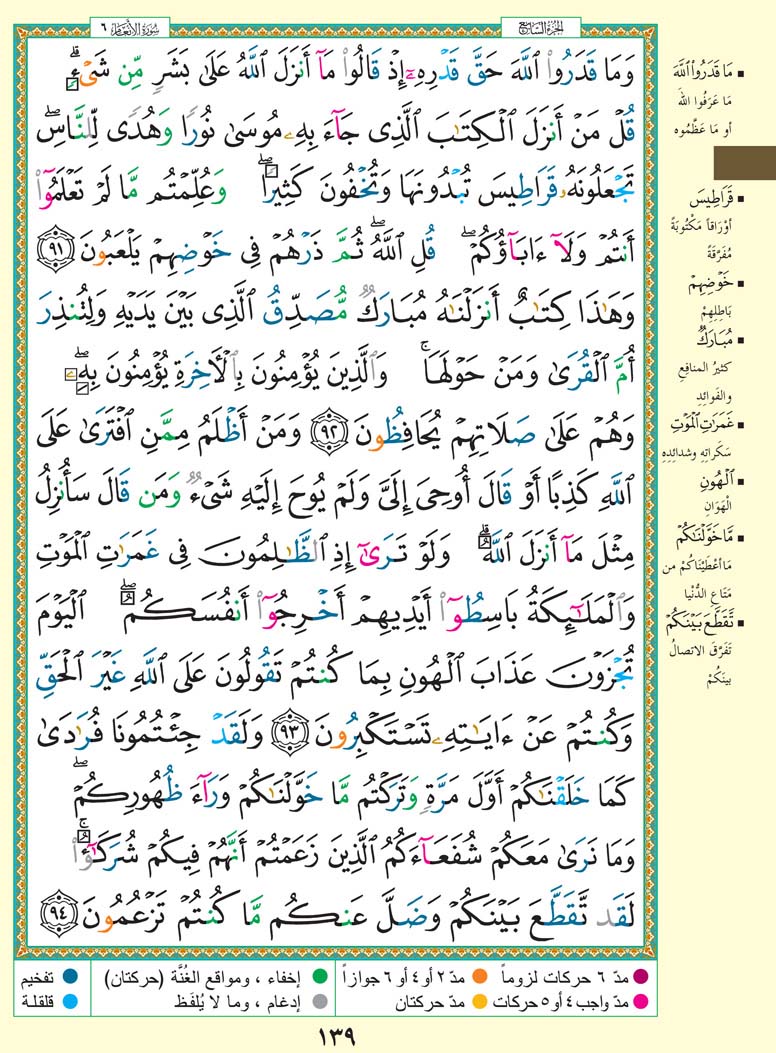 سُورَةُ الأَنْعَام ٦
الجُزْءُ السَّابِعُ
وَمَا قَدَرُوا۟ ٱللَّهَ حَقَّ قَدْرِهِۦٓ إِذْ قَالُوا۟ مَآ أَنزَلَ ٱللَّهُ عَلَىٰ بَشَرٍ مِّن شَىْءٍ ۗ
قُلْ مَنْ أَنزَلَ ٱلْكِتَـٰبَ ٱلَّذِى جَآءَ بِهِۦ مُوسَىٰ نُورًا وَهُدًى لِّلنَّاسِ ۖ
تَجْعَلُونَهُۥ قَرَاطِيسَ تُبْدُونَهَا وَتُخْفُونَ كَثِيرًا ۖ وَعُلِّمْتُم مَّا لَمْ تَعْلَمُوٓا۟
أَنتُمْ وَلَآ ءَابَآؤُكُمْ ۖ قُلِ ٱللَّهُ ۖ ثُمَّ ذَرْهُمْ فِى خَوْضِهِمْ يَلْعَبُونَ ٩١
وَهَـٰذَا كِتَـٰبٌ أَنزَلْنَـٰهُ مُبَارَكٌ مُّصَدِّقُ ٱلَّذِى بَيْنَ يَدَيْهِ وَلِتُنذِرَ
أُمَّ ٱلْقُرَىٰ وَمَنْ حَوْلَهَا ۚ وَٱلَّذِينَ يُؤْمِنُونَ بِٱلْـَٔاخِرَةِ يُؤْمِنُونَ بِهِۦ ۖ
وَهُمْ عَلَىٰ صَلَاتِهِمْ يُحَافِظُونَ ٩٢ وَمَنْ أَظْلَمُ مِمَّنِ ٱفْتَرَىٰ عَلَى
ٱللَّهِ كَذِبًا أَوْ قَالَ أُوحِىَ إِلَىَّ وَلَمْ يُوحَ إِلَيْهِ شَىْءٌ وَمَن قَالَ سَأُنزِلُ
مِثْلَ مَآ أَنزَلَ ٱللَّهُ ۗ وَلَوْ تَرَىٰٓ إِذِ ٱلظَّـٰلِمُونَ فِى غَمَرَٰتِ ٱلْمَوْتِ
وَٱلْمَلَـٰٓئِكَةُ بَاسِطُوٓا۟ أَيْدِيهِمْ أَخْرِجُوٓا۟ أَنفُسَكُمُ ۖ ٱلْيَوْمَ
تُجْزَوْنَ عَذَابَ ٱلْهُونِ بِمَا كُنتُمْ تَقُولُونَ عَلَى ٱللَّهِ غَيْرَ ٱلْحَقِّ
وَكُنتُمْ عَنْ ءَايَـٰتِهِۦ تَسْتَكْبِرُونَ ٩٣ وَلَقَدْ جِئْتُمُونَا فُرَٰدَىٰ
كَمَا خَلَقْنَـٰكُمْ أَوَّلَ مَرَّةٍ وَتَرَكْتُم مَّا خَوَّلْنَـٰكُمْ وَرَآءَ ظُهُورِكُمْ ۖ
وَمَا نَرَىٰ مَعَكُمْ شُفَعَآءَكُمُ ٱلَّذِينَ زَعَمْتُمْ أَنَّهُمْ فِيكُمْ شُرَكَـٰٓؤُا۟ ۚ
لَقَد تَّقَطَّعَ بَيْنَكُمْ وَضَلَّ عَنكُم مَّا كُنتُمْ تَزْعُمُونَ ٩٤
▪ مَا قَدَرُوا۟ ٱللَّهَ
مَا عَرَفُوا اللهَ
أو مَا عَظَّمُوه
▪ قَرَاطِيسَ
أوْرَاقاً مَكْتُوبَةً
مُفَرَّقَةً
▪ خَوْضِهِمْ
بَاطِلِهِمْ
▪ مُبَارَكٌ
كَثيرُ المنافِعِ
والفَوائِدِ
▪ غَمَرَٰتِ ٱلْمَوْتِ
سَكَراتِهِ وشدائِدِهِ
▪ ٱلْهُونِ
الْهَوَانِ
▪ مَّا خَوَّلْنَـٰكُمْ
مَا أعْطَيْنَاكُمْ من
مَتَاعِ الدُّنْيا
▪ تَّقَطَّعَ بَيْنَكُمْ
تَفَرَّقَ الاتصالُ
بينَكُمْ
● مدّ ٦ حركات لزوماً ● مدّ ٢ أو ٤ أو ٦ جوازاً ● إخفاء ، ومواقع الغُنَّة (حركتان) ● تفخيم
● مدّ واجب ٤ أو ٥ حركات ● مدّ حركتان ● إدغام ، وما لا يُلفَظ ● قلقلة
١٣٩